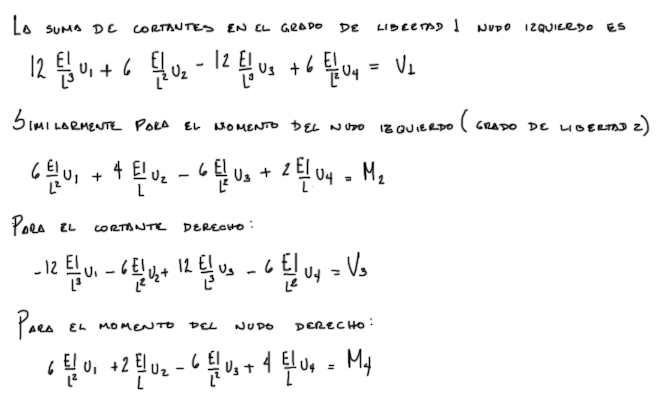 LA SUMA DE CORTANTES EN EL GRADO DE LIBERTAD 1 NUDO IZQUIERDO ES
12 EI/L³ u₁ + 6 EI/L² u₂ - 12 EI/L³ u₃ + 6 EI/L² u₄ = V₁
SIMILARMENTE PARA EL MOMENTO DEL NUDO IZQUIERDO (GRADO DE LIBERTAD 2)
6 EI/L² u₁ + 4 EI/L u₂ - 6 EI/L² u₃ + 2 EI/L u₄ = M₂
PARA EL CORTANTE DERECHO:
-12 EI/L³ u₁ - 6 EI/L² u₂ + 12 EI/L³ u₃ - 6 EI/L² u₄ = V₃
PARA EL MOMENTO DEL NUDO DERECHO:
6 EI/L² u₁ + 2 EI/L u₂ - 6 EI/L² u₃ + 4 EI/L u₄ = M₄